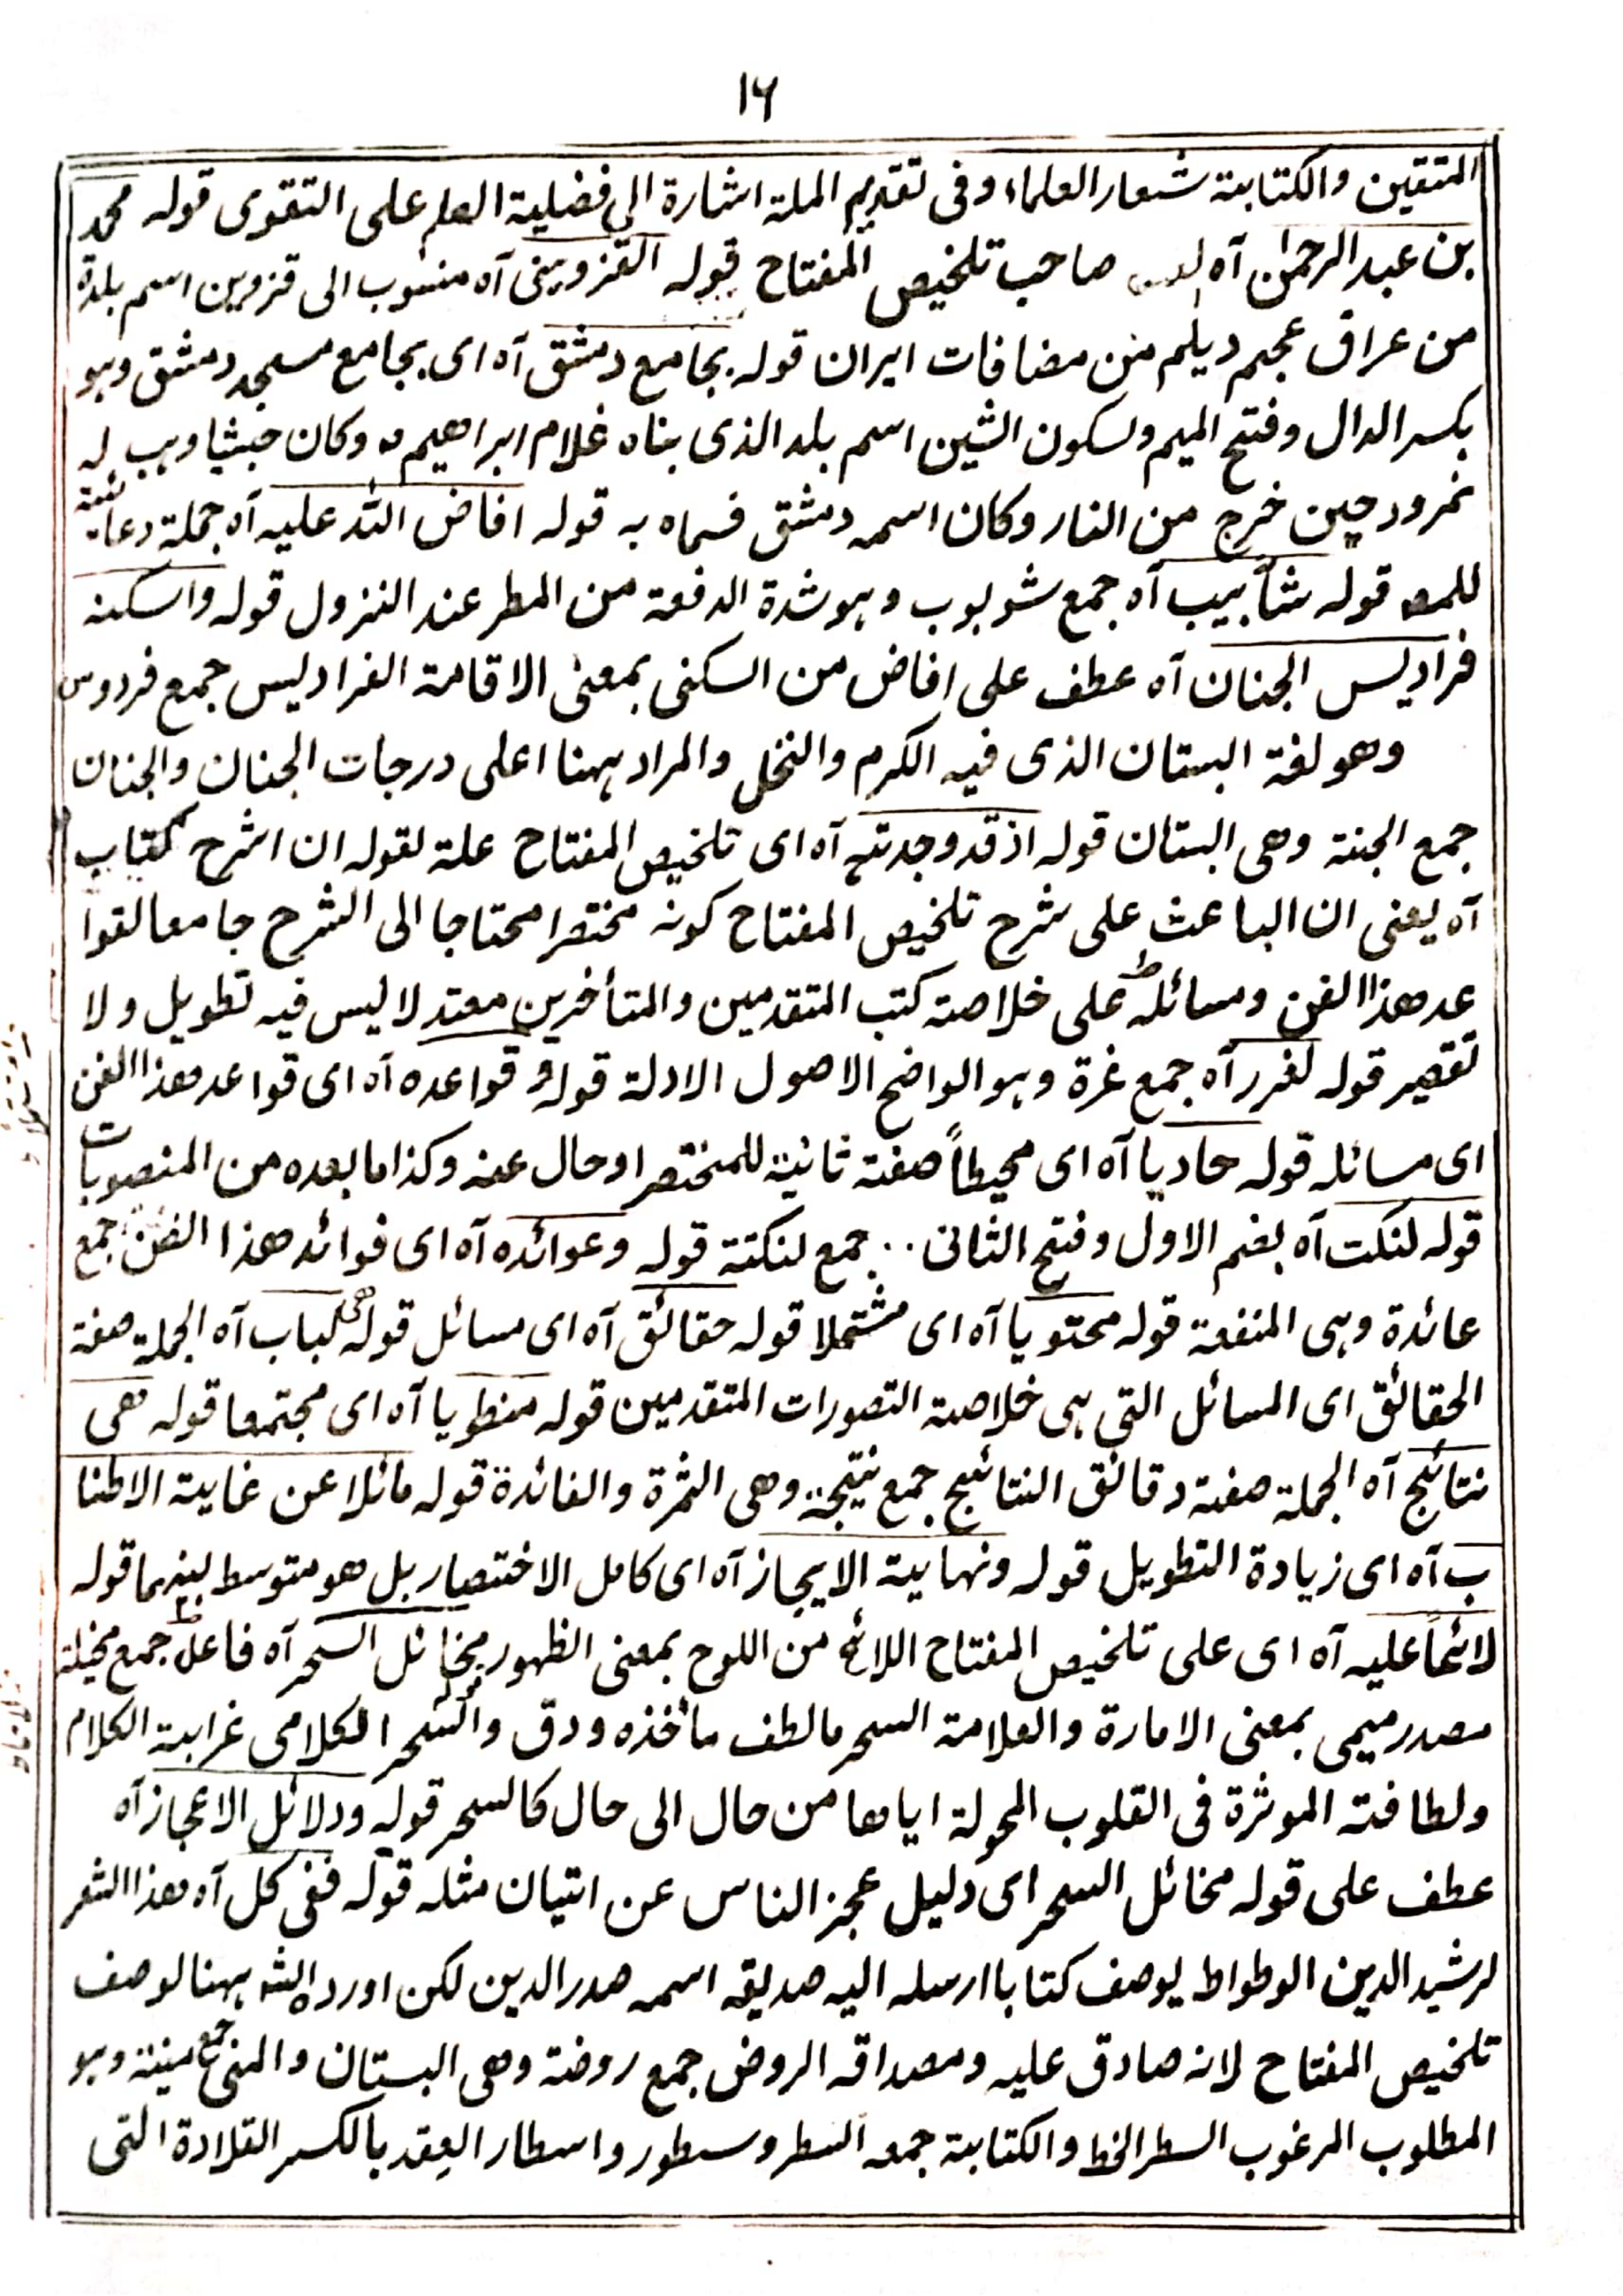 ۱۶
المتقین والکتابة شعار العلماء وفی تقدیم الملة اشارة الی فضلیة العلم علی التقوی قوله محمد
بن عبد الرحمٰن آه صاحب تلخیص المفتاح قوله القزوینی آه منسوب الی قزوین اسم بلدة
من عراق عجم دیلم من مضافات ایران قوله بجامع دمشق آه ای بجامع مسجد دمشق وہو
بکسر الدال وفتح المیم وسکون الشین اسم بلد الذی بناه غلام ابراهیم وکان حبشیا وہب له
نمرود حین خرج من النار وکان اسمه دمشق فسماه به قوله افاض الله علیه آه جملة دعائیة
للمصـ قوله شأبیب آه جمع شوبوب وہو شدة الدفعة من المطر عند النزول قوله واسکنه
فرادیس الجنان آه عطف علی افاض من السکنی بمعنی الاقامة الفرادیس جمع فردوس
وهو لغة البستان الذی فیه الکرم والنخل والمراد ہہنا اعلی درجات الجنان والجنان
جمع الجنة وهی البستان قوله اذ قد وجدته آه ای تلخیص المفتاح علة لقوله ان اشرح کتاب
آه یعنی ان الباعث علی شرح تلخیص المفتاح کونه مختصرا محتاجا الی الشرح جامعا لقوا
عد هذا الفن ومسائله علی خلاصة کتب المتقدمین والمتأخرین معتدلا لیس فیه تطویل ولا
تقصیر قوله لغرر آه جمع غرة وہو الواضح الاصول الادلة قوله وقواعده آه ای قواعد هذا الفن
ای مسائله قوله حاویا آه ای محیطاً صفة ثانیة للمختصر او حال عنه وکذا ما بعده من المنصوبات
قوله لنکت آه بضم الاول وفتح الثانی .. جمع لنکتة قوله وعوائده آه ای فوائد هذا الفن جمع
عائدة وہی المنفعة قوله محتویا آه ای مشتملا قوله حقائق آه ای مسائل قوله هی لباب آه الجملة صفة
الحقائق ای المسائل التی ہی خلاصة التصورات المتقدمین قوله منطویا آه ای مجتمعا قوله هی
نتائج آه الجملة صفة دقائق النتائج جمع نتیجة وهی الثمرة والفائدة قوله مائلا عن غایة الاطنا
ب آه ای زیادة التطویل قوله ونہایة الایجاز آه ای کامل الاختصار بل هو متوسط بینہما قوله
لائحاً علیه آه ای علی تلخیص المفتاح اللائح من اللوح بمعنی الظہور مخائل السحر آه فاعل جمع مخیلة
مصدر میمی بمعنی الامارة والعلامة السحر ما لطف مأخذه ودق والسحر الکلامی غرابة الکلام
ولطافته الموثرة فی القلوب المحولة ایاها من حال الی حال کالسحر قوله ودلائل الاعجاز آه
عطف علی قوله مخائل السحر ای دلیل عجز الناس عن اتیان مثله قوله ففی کل آه هذا الشعر
لرشید الدین الوطواط یوصف کتابا ارسله الیه صدیقه اسمه صدر الدین لکن اورده الشـ ہہنا لوصف
تلخیص المفتاح لانه صادق علیه ومصداقه الروض جمع روضة وهی البستان والمنی جمع منیة وہو
المطلوب المرغوب السطر الخط والکتابة جمعه السطر وسطور واسطار العِقد بالکسر القلادة التی